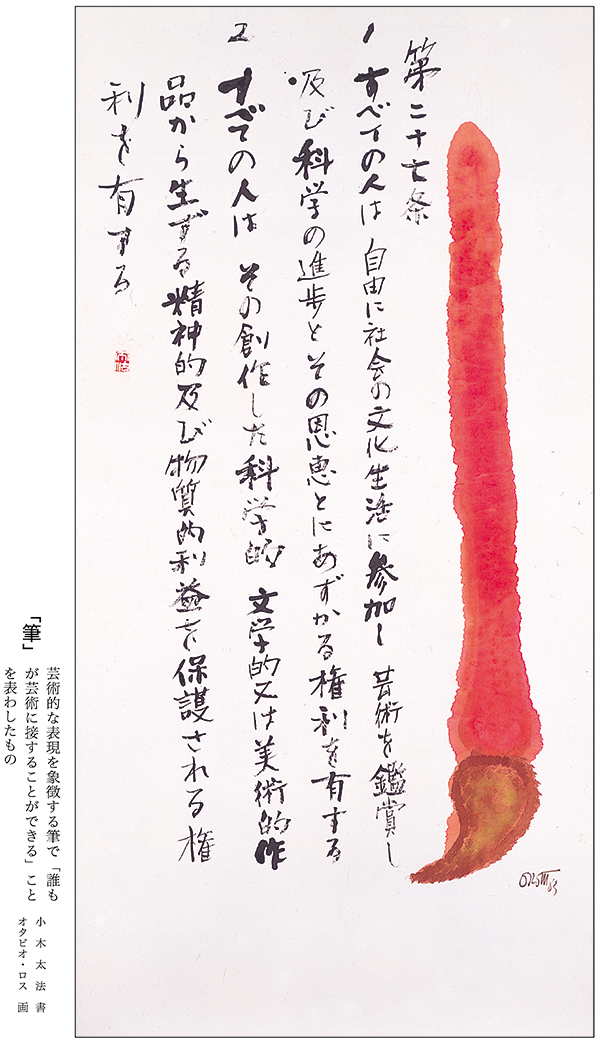 第二十七条
1 すべての人は 自由に社会の文化生活に参加し 芸術を鑑賞し
及び科学の進歩とその恩恵とにあずかる権利を有する
2 すべての人は その創作した科学的 文学的又は美術的作
品から生ずる精神的及び物質的利益を保護される権
利を有する
「筆」
芸術的な表現を象徴する筆で「誰も
が芸術に接することができる」こと
を表わしたもの
小木太法 書
オタビオ・ロス 画